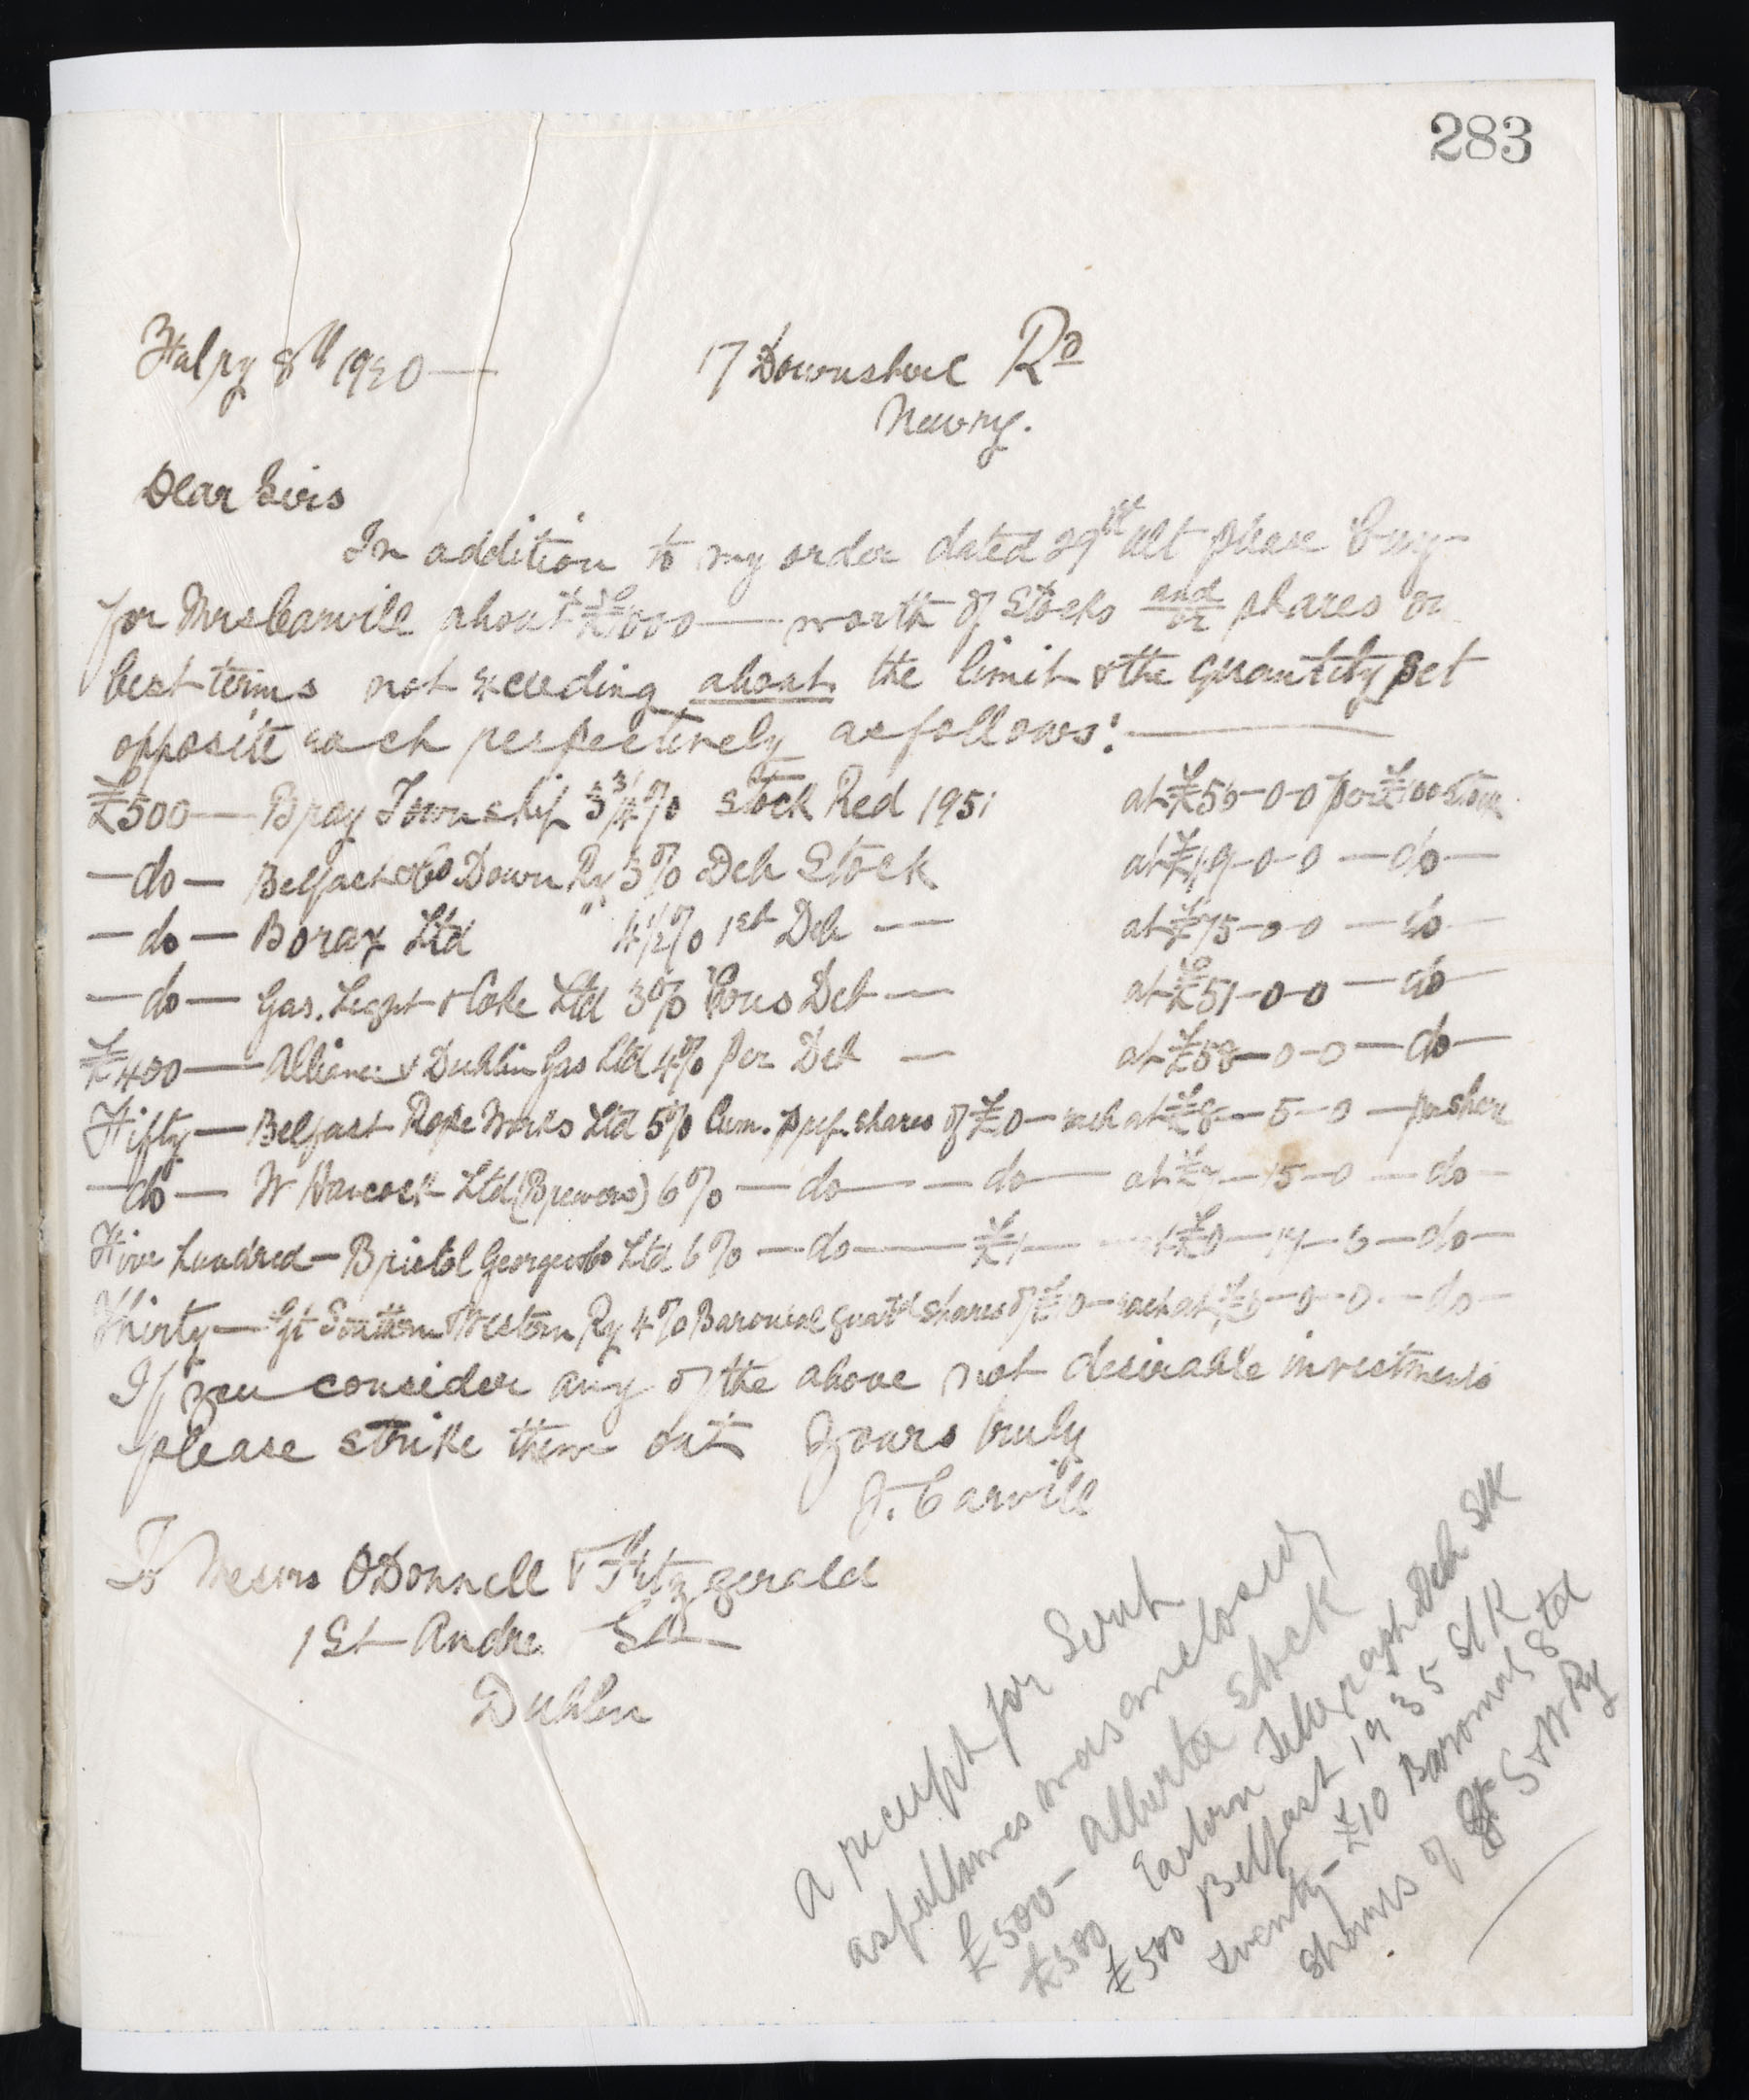 283
17 Downshire Rd
8th 1920
Newry.
Dear Sirs
In addition to my order dated 29th ult please buy
for Mrs Carvill about worth of Stocks and/or shares on
best terms not exceeding about the limit & the quantity set
opposite each respectively as follows:
£500 — Bray Township 3 3/4 % Stock Red 1951 at £56-0-0 per £100 Stock
— do — Belfast & Co Down Ry 3% Deb Stock at £49-0-0 — do —
— do — Borax Ltd 4½% 1st Deb — at £75-0-0 — do —
— do — Gas. Light & Coke Ltd 3% Cons Deb — at £51-0-0 — do —
£400 — Alliance & Dublin Gas Ltd 4% per Deb — at £58-0-0 — do —
Fifty — Belfast Rope Works Ltd 5% Cum. pref. shares of each at £8-5-0 — per share
— do — W Hancock Ltd (Brewers) 6% — do — — do — at 15-0 — do —
Five hundred — Bristol Georges Co Ltd 6% — do — £1 — £0-17-6 — do —
Thirty — Gt Southern & Western Ry 4% Baronial guartd shares of £10 — each at 0-0 — do —
If you consider any of the above not desirable investments
please strike them out Yours truly
J. Carvill
To Messrs O'Donnell & Fitzgerald
1 St Andre St
Dublin
A receipt for Scrip
as follows was enclosed
£500 — Alberta Stock
£500 Eastern Telegraph Deb Stk
£500 Belfast 1935 Stk
Twenty — £10 Baronial gtd
shares of Gt S & W Ry